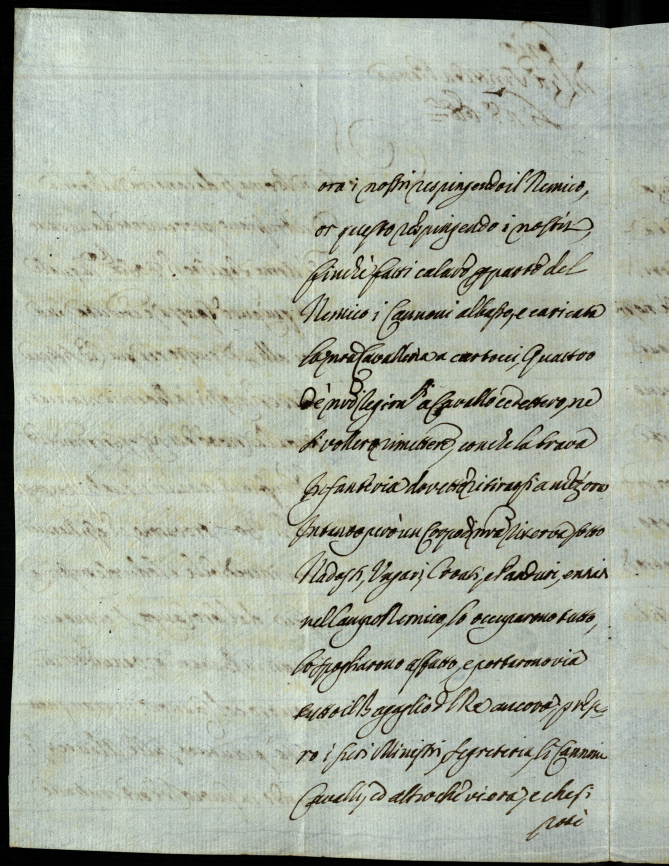 ora i nostri respingendo il Nemico,
or questo respingendo i nostri,
finchè fatti calare p parte del
Nemico i Cannoni al basso, e caricata
la nrã Cavalleria a cartocci, Quattro
de' nrĩ Regim.ti a Cavallo cedettero, ne
si vollero rimettere, conche la brava
Infanteria dovette ritirarsi a mezz'ora
Intanto però un Corpo di nrã riserva sotto
Nadasti, Ungari, Croati, e Panduri, entrò
nel Campo Nemico, lo occuparono tutto,
lo spogliarono affatto, e portarono via
tutto il Bagaglio del Re ancora, prese-
ro i suoi Ministri, Segreteria, li Cannoni
Cavalli, ed altro che vi era, e che si
potè